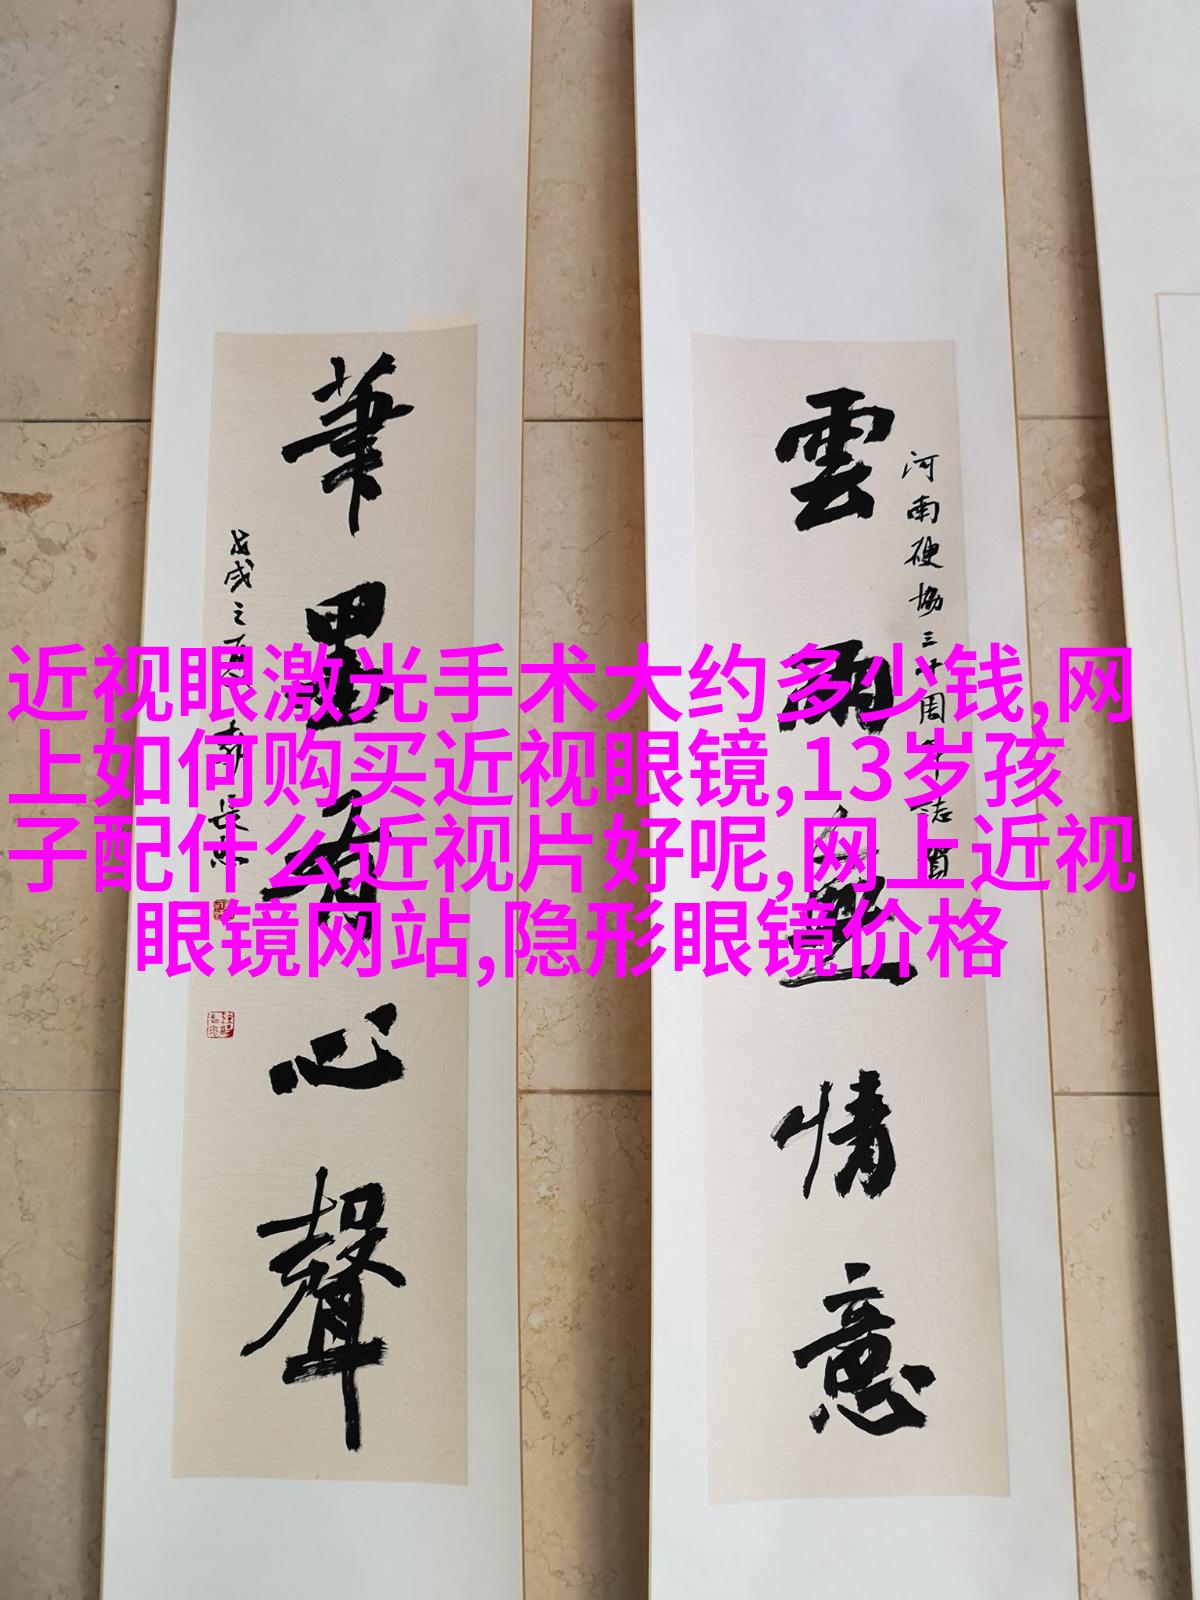 近视眼激光手术大约多少钱,网
上如何购买近视眼镜,13岁孩
子配什么近视片好呢,网上近视
眼镜网站,隐形眼镜价格
雲雨無情意
河南硬協三十周年誌賀
筆墨有心聲
戊戌之夏